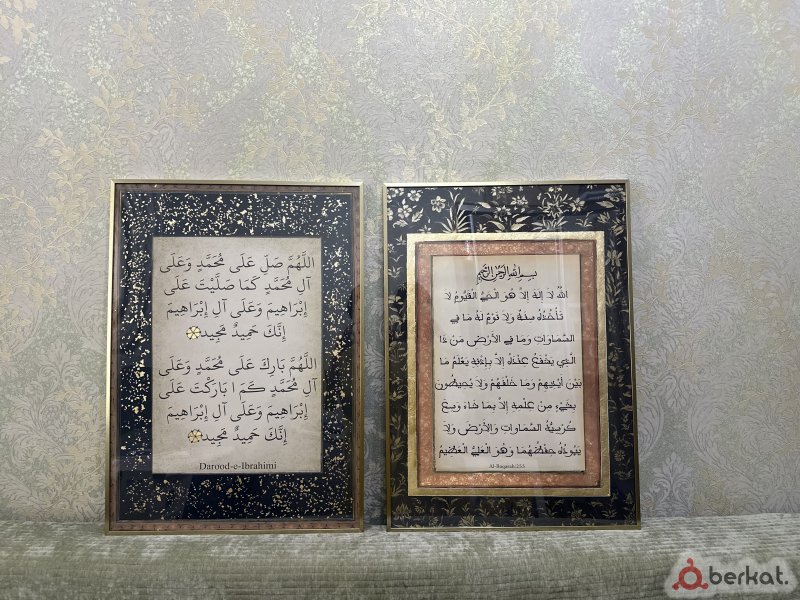 اللَّهُمَّ صَلِّ عَلَى مُحَمَّدٍ وَعَلَى
آلِ مُحَمَّدٍ كَمَا صَلَّيْتَ عَلَى
إِبْرَاهِيمَ وَعَلَى آلِ إِبْرَاهِيمَ
إِنَّكَ حَمِيدٌ مَجِيدٌ
اللَّهُمَّ بَارِكْ عَلَى مُحَمَّدٍ وَعَلَى
آلِ مُحَمَّدٍ كَمَ ا بَارَكْتَ عَلَى
إِبْرَاهِيمَ وَعَلَى آلِ إِبْرَاهِيمَ
إِنَّكَ حَمِيدٌ مَجِيدٌ
Darood-e-Ibrahimi
بسم الله الرحمن الرحيم
اللهُ لَا إِلَهَ إِلَّا هُوَ الْحَيُّ الْقَيُّومُ لَا
تَأْخُذُهُ سِنَةٌ وَلَا نَوْمٌ لَهُ مَا فِي
السَّمَاوَاتِ وَمَا فِي الْأَرْضِ مَنْ ذَا
الَّذِي يَشْفَعُ عِنْدَهُ إِلَّا بِإِذْنِهِ يَعْلَمُ مَا
بَيْنَ أَيْدِيهِمْ وَمَا خَلْفَهُمْ وَلَا يُحِيطُونَ
بِشَيْءٍ مِنْ عِلْمِهِ إِلَّا بِمَا شَاءَ وَسِعَ
كُرْسِيُّهُ السَّمَاوَاتِ وَالْأَرْضَ وَلَا
يَئُودُهُ حِفْظُهُمَا وَهُوَ الْعَلِيُّ الْعَظِيمُ
Al-Baqarah:255
berkat.